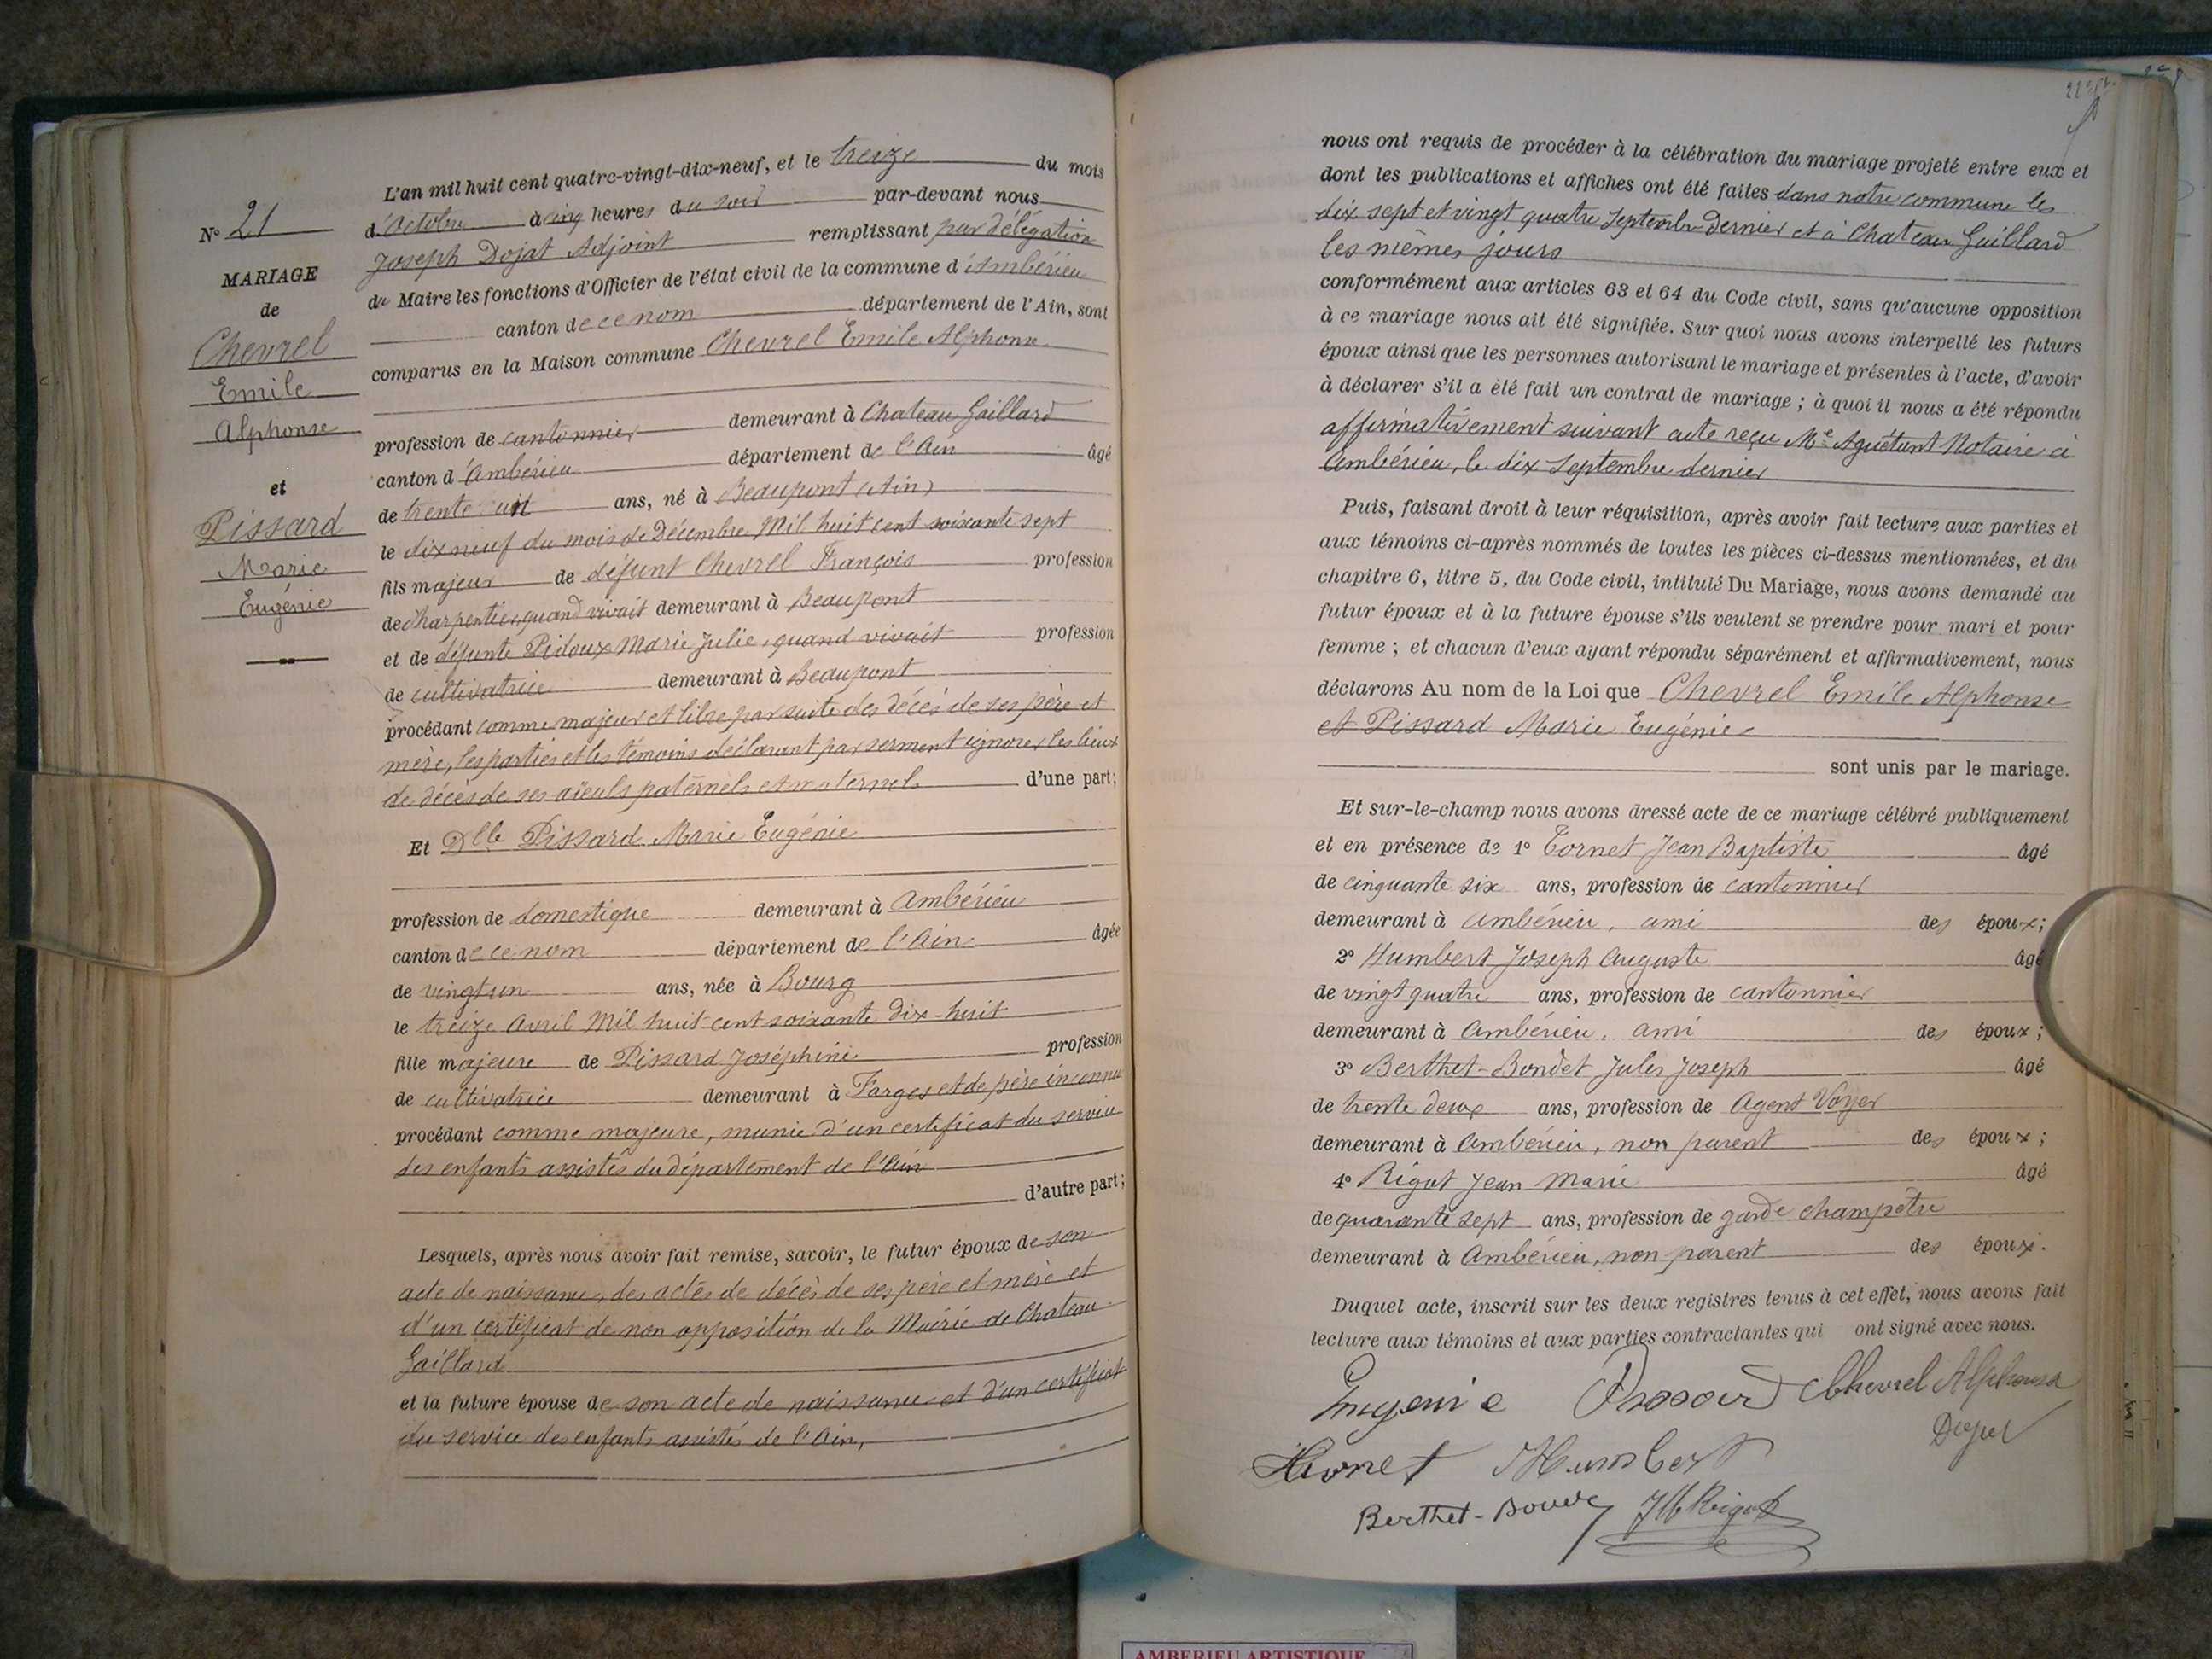 N° 21
MARIAGE
de
Chevrel
Emile
Alphonse
et
Pissard
Marie
Eugénie
L'an mil huit cent quatre-vingt-dix-neuf, et le treize du mois
d'Octobre à cinq heures du soir par-devant nous
Joseph Dojat Adjoint remplissant par délégation
du Maire les fonctions d'Officier de l'état civil de la commune d'Ambérieu
canton de ce nom département de l'Ain, sont
comparus en la Maison commune Chevrel Emile Alphonse
profession de cantonnier demeurant à Chateau Gaillard
canton d'Ambérieu département de l'Ain âgé
de trente un ans, né à Beaupont (Ain)
le dix neuf du mois de Décembre Mil huit cent soixante sept
fils majeur de défunt Chevrel François profession
de charpentier, quand vivait demeurant à Beaupont
et de défunte Pidoux Marie Julie, quand vivait profession
de cultivatrice demeurant à Beaupont
procédant comme majeur et libre par suite des décès de ses père et
mère, les parties et les témoins déclarant par serment ignorer les lieux
de décès de ses aïeuls paternels et maternels d'une part;
Et Dlle Pissard Marie Eugénie
profession de domestique demeurant à Ambérieu
canton de ce nom département de l'Ain âgée
de vingt un ans, née à Bourg
le treize Avril Mil huit cent soixante dix-huit
fille majeure de Pissard Joséphine profession
de cultivatrice demeurant à Farges et de père inconnu
procédant comme majeure, munie d'un certificat du service
des enfants assistés du département de l'Ain
d'autre part;
Lesquels, après nous avoir fait remise, savoir, le futur époux de son
acte de naissance, des actes de décès de ses père et mère et
d'un certificat de non opposition de la Mairie de Chateau-
Gaillard
et la future épouse de son acte de naissance et d'un certificat
du service des enfants assistés de l'Ain,
nous ont requis de procéder à la célébration du mariage projeté entre eux et
dont les publications et affiches ont été faites dans notre commune les
dix sept et vingt quatre Septembre Dernier et à Chateau Gaillard
les mêmes jours
conformément aux articles 63 et 64 du Code civil, sans qu'aucune opposition
à ce mariage nous ait été signifiée. Sur quoi nous avons interpellé les futurs
époux ainsi que les personnes autorisant le mariage et présentes à l'acte, d'avoir
à déclarer s'il a été fait un contrat de mariage ; à quoi il nous a été répondu
affirmativement suivant acte reçu Me Aguétant Notaire à
Ambérieu, le dix Septembre dernier
Puis, faisant droit à leur réquisition, après avoir fait lecture aux parties et
aux témoins ci-après nommés de toutes les pièces ci-dessus mentionnées, et du
chapitre 6, titre 5, du Code civil, intitulé Du Mariage, nous avons demandé au
futur époux et à la future épouse s'ils veulent se prendre pour mari et pour
femme ; et chacun d'eux ayant répondu séparément et affirmativement, nous
déclarons Au nom de la Loi que Chevrel Emile Alphonse
et Pissard Marie Eugénie
sont unis par le mariage.
Et sur-le-champ nous avons dressé acte de ce mariage célébré publiquement
et en présence de 1° Tornet Jean Baptiste âgé
de cinquante six ans, profession de cantonnier
demeurant à Ambérieu, ami des époux;
2° Humbert Joseph Auguste âgé
de vingt quatre ans, profession de cantonnier
demeurant à Ambérieu, ami des époux;
3° Berthet-Bondet Jules Joseph âgé
de trente deux ans, profession de Agent Voyer
demeurant à Ambérieu, non parent des époux;
4° Rigot Jean Marie âgé
de quarante sept ans, profession de garde champêtre
demeurant à Ambérieu, non parent des époux.
Duquel acte, inscrit sur les deux registres tenus à cet effet, nous avons fait
lecture aux témoins et aux parties contractantes qui ont signé avec nous.
Eugenie Pissard Chevrel Alphonse
Dojat
Humbert
Berthet-Bondet JM Rigot
AMBERIEU ARTISTIQUE